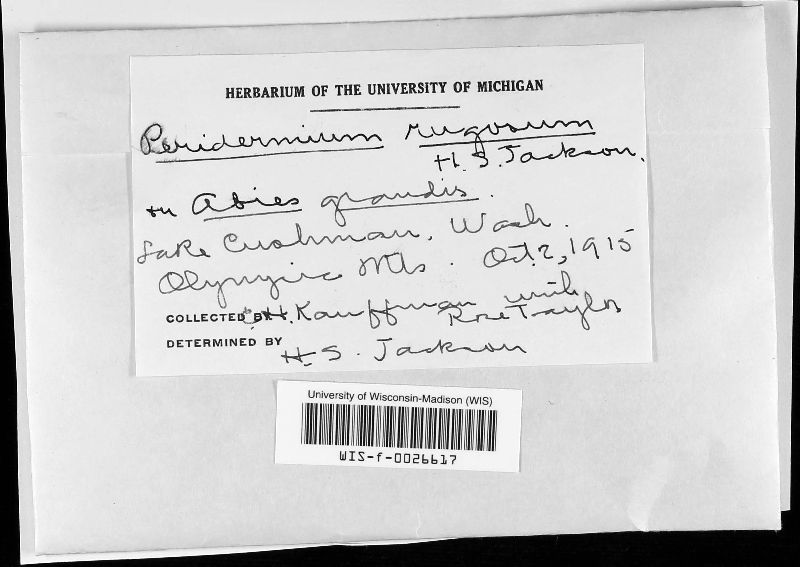 HERBARIUM OF THE UNIVERSITY OF MICHIGAN
Peridermium rugosum
H. S. Jackson.
on Abies grandis.
Lake Cushman, Wash.
Olympic Mts. Oct. 2, 1915
COLLECTED BY C.H. Kauffman with
Rose Taylor
DETERMINED BY H. S. Jackson
University of Wisconsin-Madison (WIS)
WIS-f-0026617